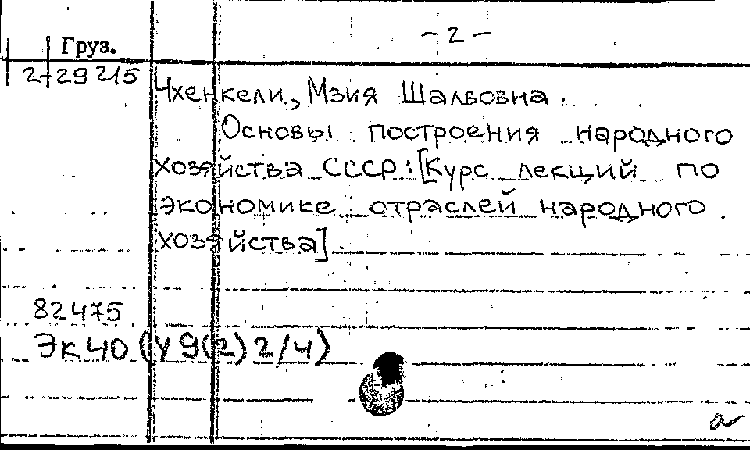 - 2 -
Груз.
2-29215
Чхенкели, Мзия Шалвовна.
Основы построения народного
хозяйства СССР: [Курс лекций по
экономике отраслей народного
хозяйства]
82475
Эк40 (У9(2)2/4)
а